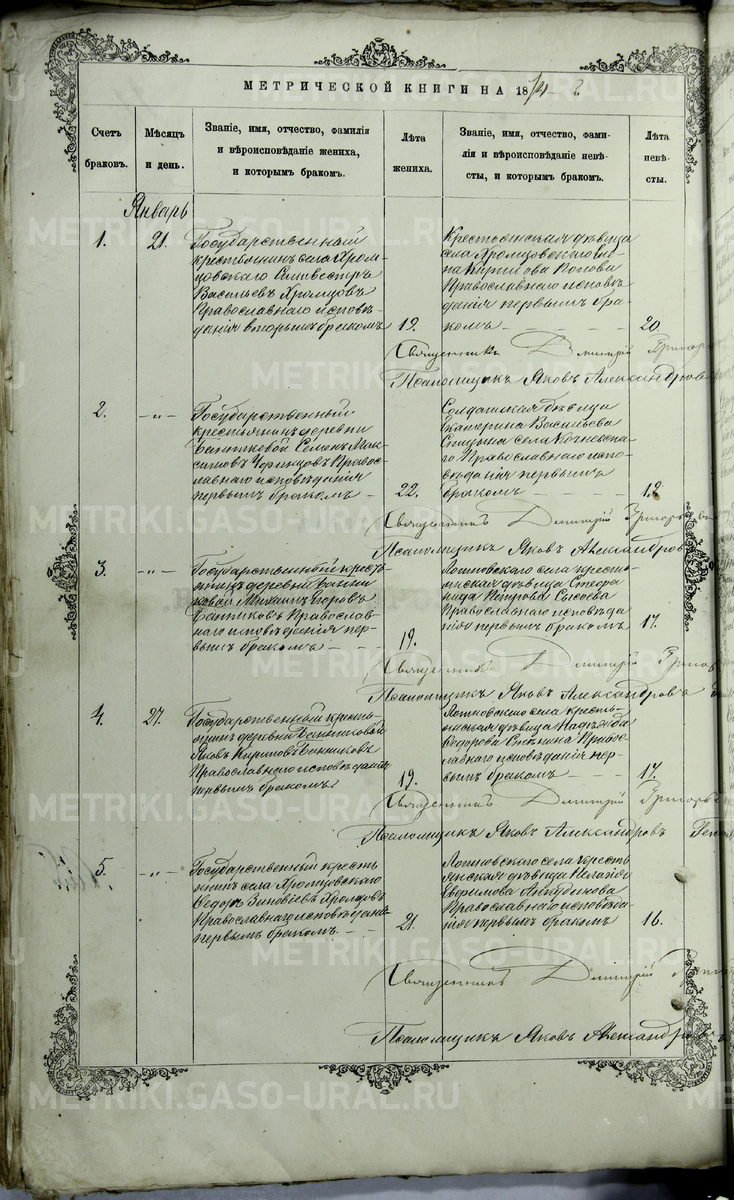 МЕТРИЧЕСКОЙ КНИГИ НА 18
Счетъ браковъ.
Мѣсяцъ и день.
Званіе, имя, отчество, фамилія
и вѣроисповѣданіе жениха,
и которымъ бракомъ.
Лѣта жениха.
Званіе, имя, отчество, фами-
лія и вѣроисповѣданіе невѣ-
сты, и которымъ бракомъ.
Лѣта невѣ-
сты.
Январь
1. 21.
Государственный
крестьянинъ села Хром-
цовскаго Сильвестръ
Васильевъ Хромцовъ
Православнаго исповѣ-
данія вторымъ бракомъ
19.
Крестьянская дѣвица
села Хромцовскаго Еле-
на Кирилова Попова
Православнаго исповѣ
данія первымъ бра-
комъ
20.
Священникъ Дмитрій Григор
Псаломщикъ Яковъ Александровъ
2. -"-
Государственный
крестьянинъ деревни
Банниковой Семенъ Мак-
симовъ Право-
славнаго исповѣданія
первымъ бракомъ
22.
Солдатская дѣвица
Екатерина Васильева
села Кочневска-
го Православнаго испо-
вѣданія первымъ
бракомъ
18.
Священникъ Дмитрій Григорьевъ
Псаломщикъ Яковъ Александровъ
3. -"-
Государственный кресть
янинъ деревни Банни
ковой Михаилъ Егоровъ
Банниковъ Православ-
наго исповѣданія пер-
вымъ бракомъ
19.
Логиновскаго села кресть-
янская дѣвица Степа
нида Петрова Сысоева
Православнаго исповѣда
нія первымъ бракомъ
17.
Священникъ Дмитрій Григор
Псаломщикъ Яковъ Александровъ
4. 27.
Государственный кресть-
янинъ деревни Банниковой
Яковъ Кириловъ Банниковъ
Православнаго исповѣданія
первымъ бракомъ
19.
Логиновскаго села кресть-
янская дѣвица Надежда
Ѳедорова Право-
славнаго исповѣданія пер-
вымъ бракомъ
17.
Священникъ Дмитрій Григорьевъ
Псаломщикъ Яковъ Александровъ
5. -"-
Государственный кресть
янинъ села Хромцовскаго
Ѳедоръ Зиновьевъ Хромцовъ
Православнаго исповѣданія
первымъ бракомъ
21.
Логиновскаго села кресть
янская дѣвица Пелагія
Евфимова
Православнаго исповѣда-
нія первымъ бракомъ
16.
Священникъ Дмитрій
Псаломщикъ Яковъ Александровъ
METRIKI.GASO-URAL.RU